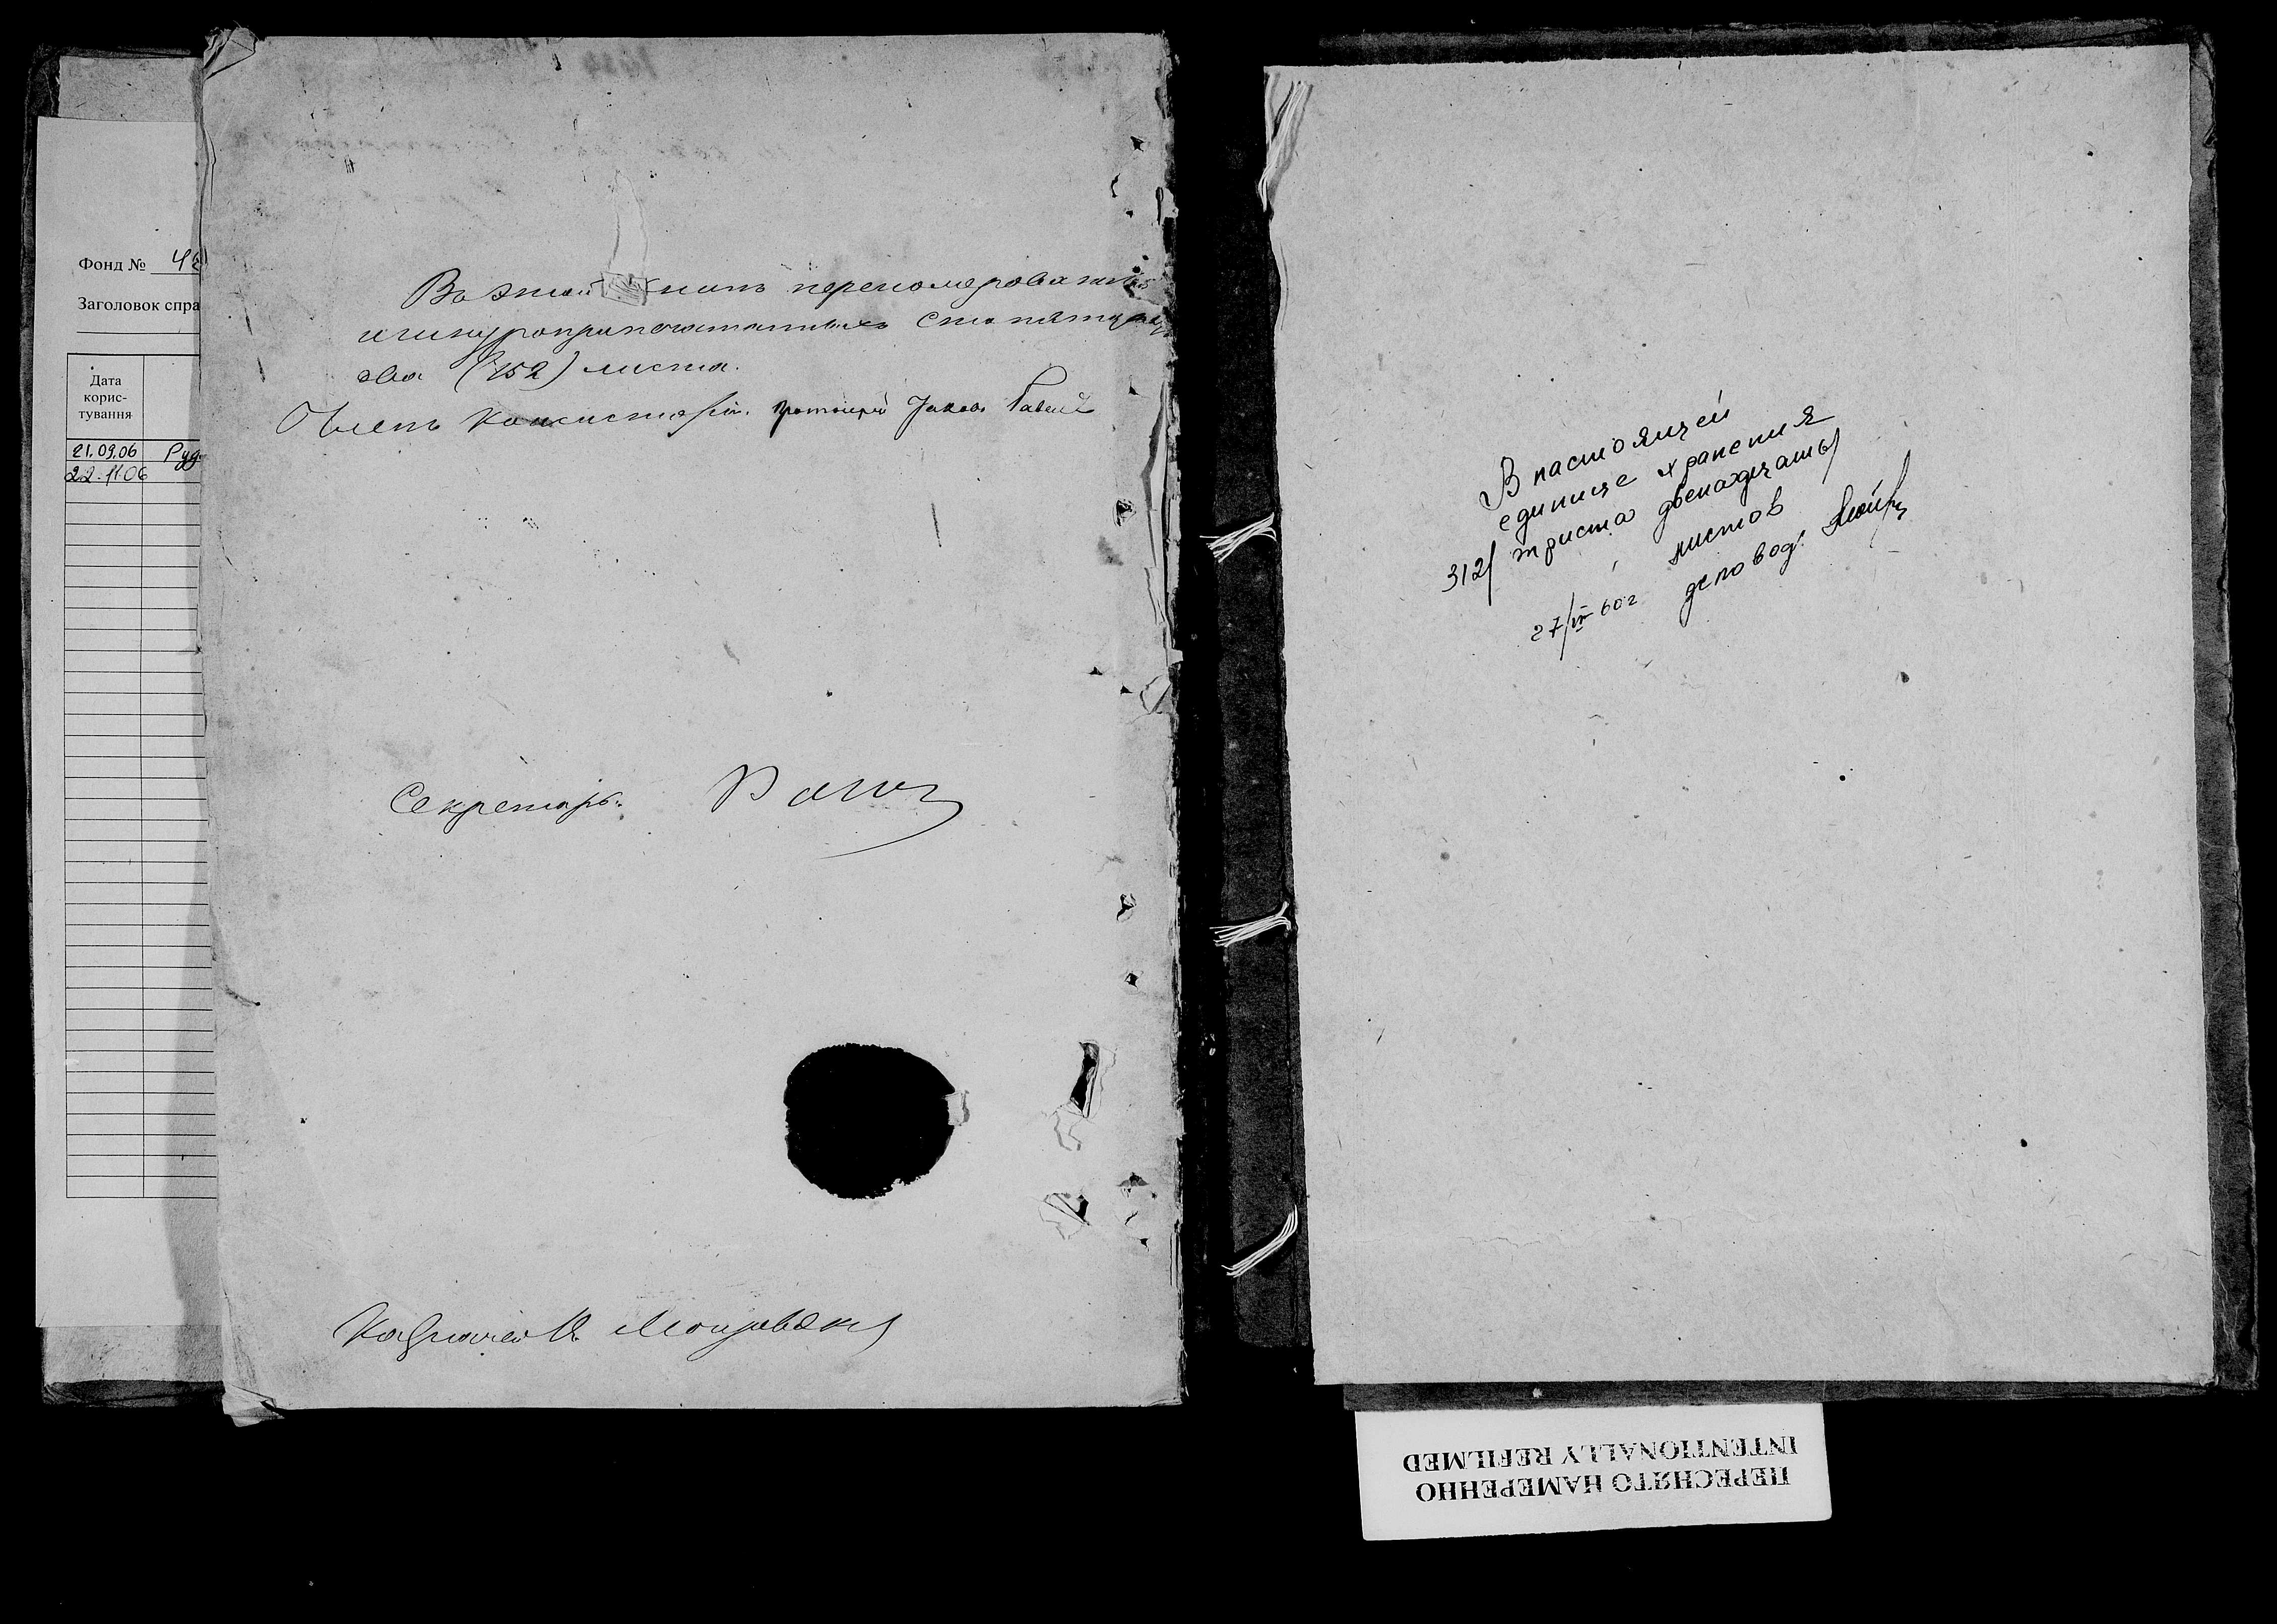 Фонд № 42
Заголовок спра
Дата
корис-
тування
21.09.06 Руд
22.11.06
Въ этой книгѣ перенумерованныхъ
и шнуроприпечатанныхъ сто пятьдесятъ
два (152) листа.
Членъ Консисторіи, Протоіерей Іаковъ
Секретарь
Казначей
В настоящей
единице хранения
312/ триста двенадцать/
листов
27/IV 60 г деловод.
ПЕРЕСНЯТО НАМЕРЕННО
INTENTIONALLY REFILMED